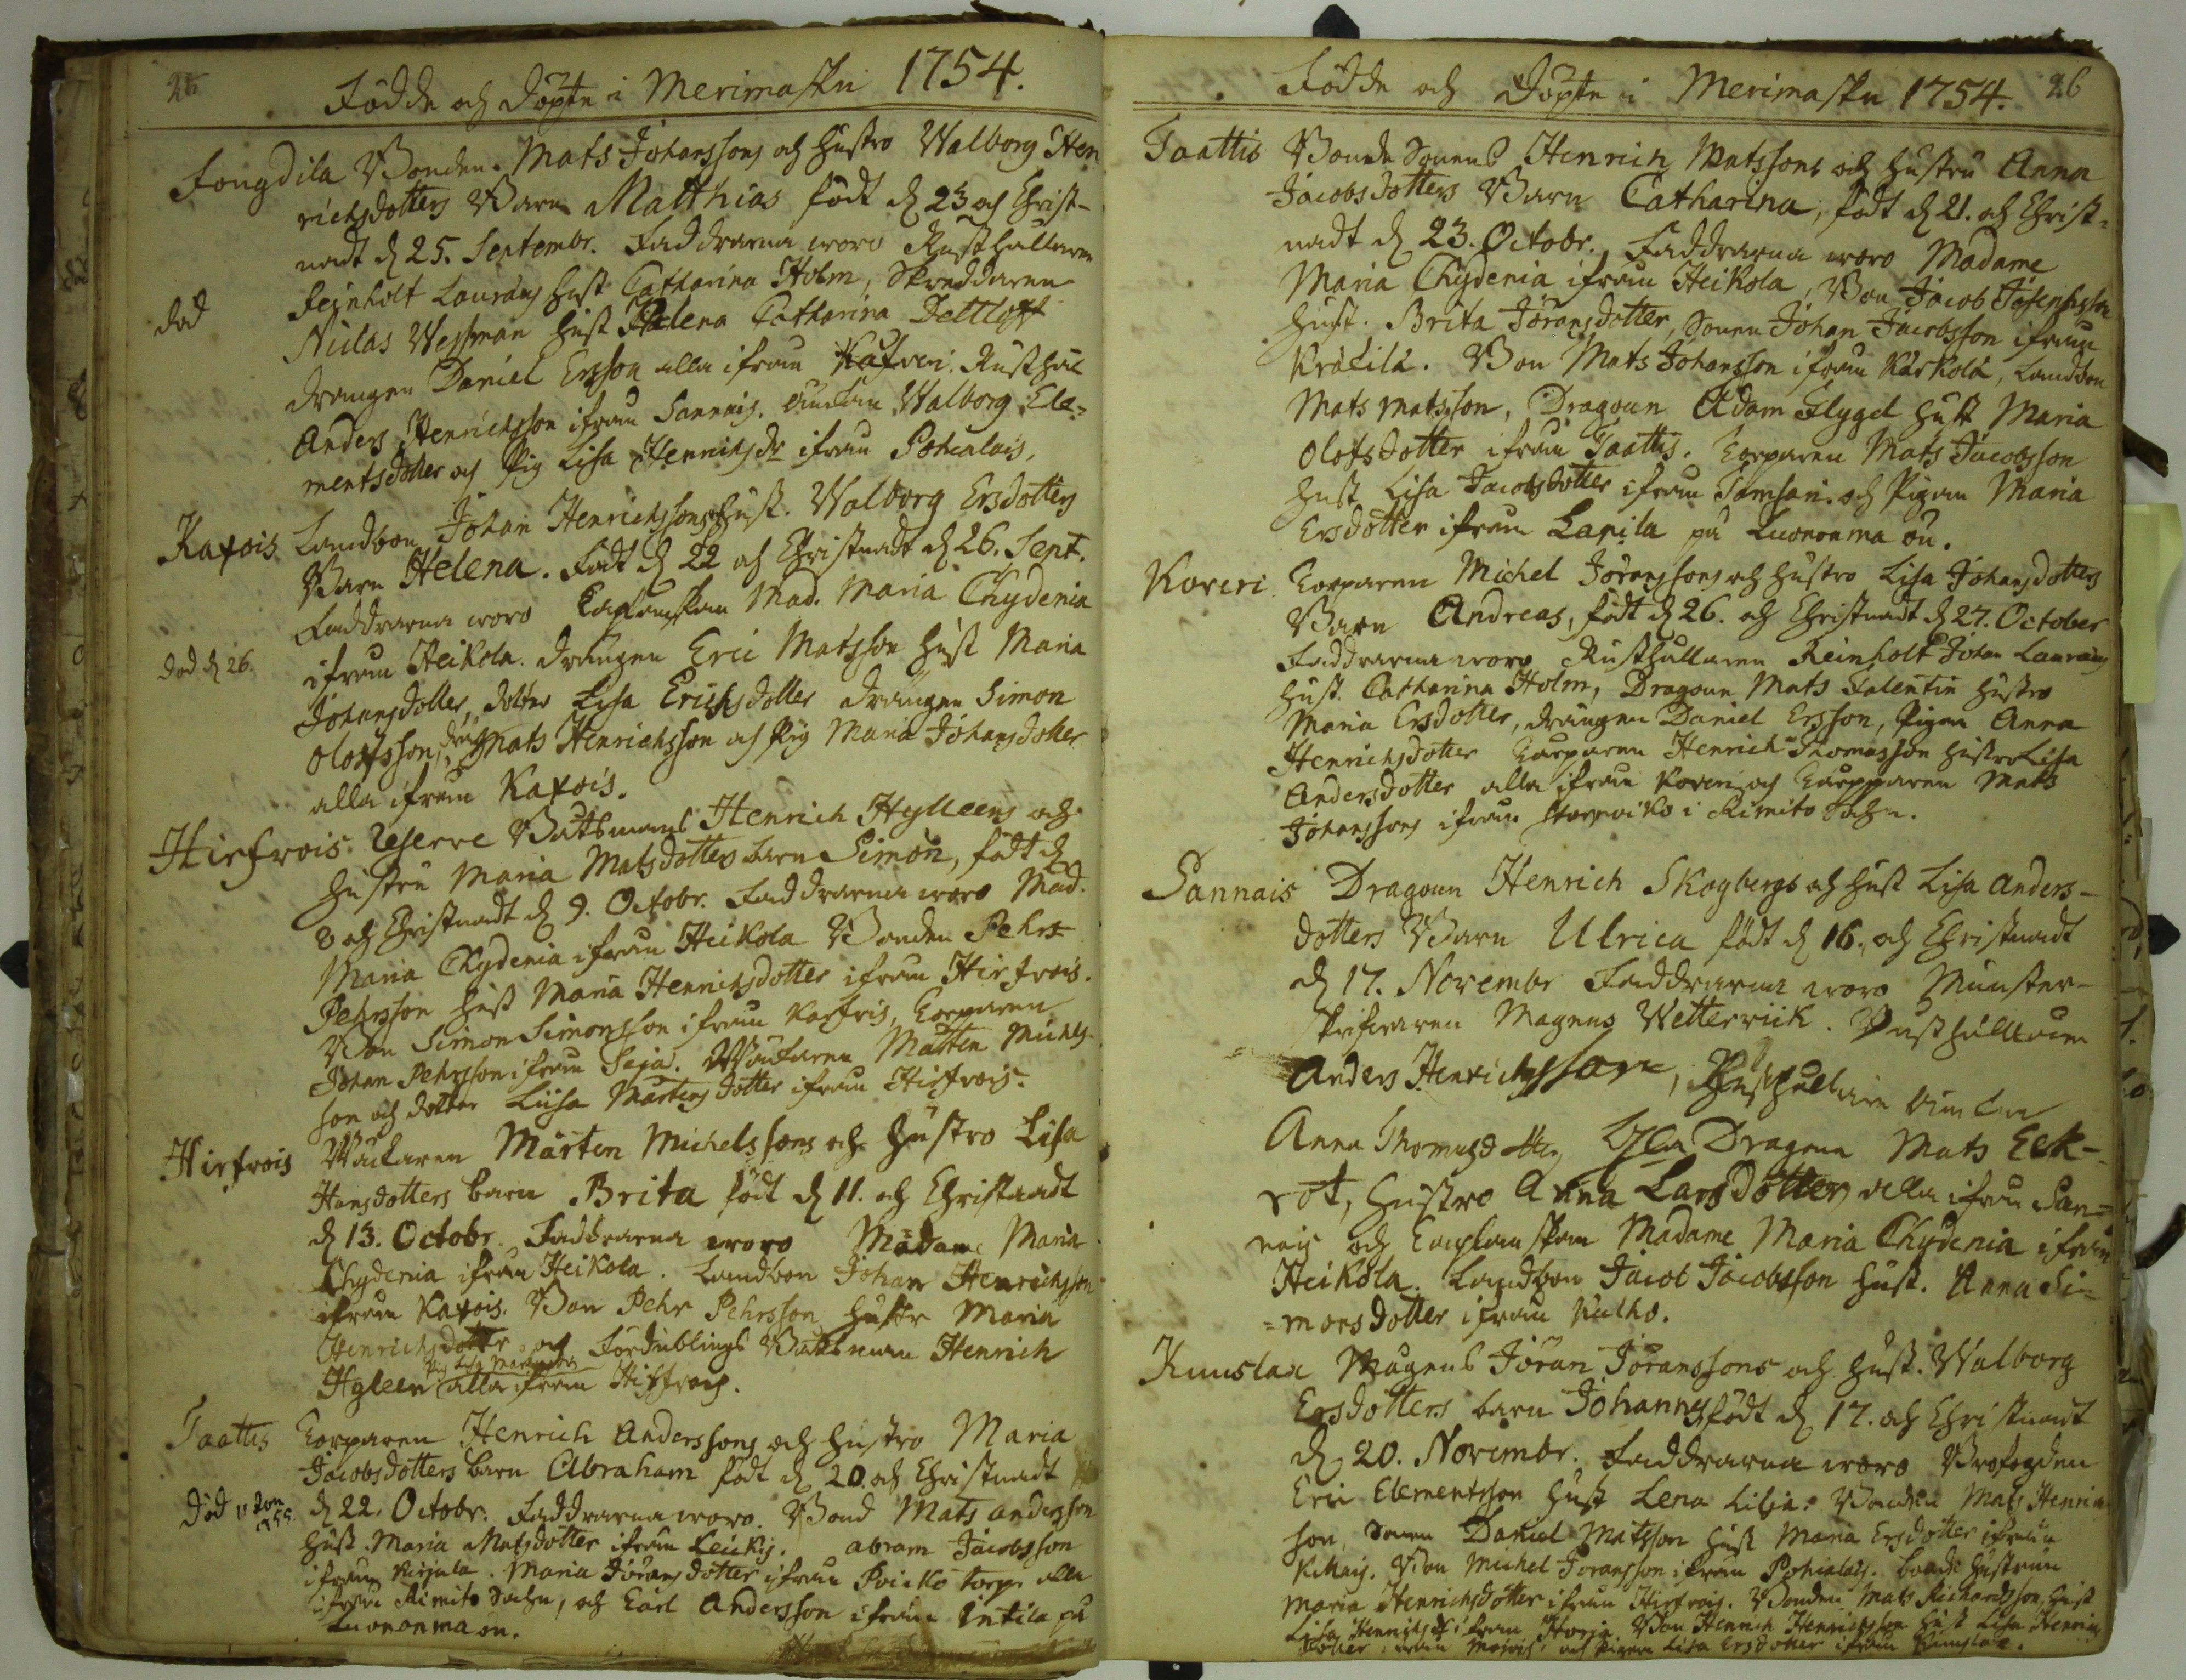 Födde och Döpte i Merimasku 1754.
Bonden Mats Johanssons och Hustro Walborg Hen
richsdotters Barn Matthias född d 23 och Christ-
nadt d 25. Septembr. Faddrarna woro Rusthållaren
Reinholt Laurens hust. Catharina Holm, Skreddaren
död
Niclas Wessman hust Helena Catharina Dettloff
drängen Daniel Ersson alla ifrån Rusthål
Anders Henrichsson ifrån Sannais. Walborg Cle-
mentsdotter och Pig Lisa Henrichsdr ifrån Pohialais.
Kaxois Landbon Johan Henrichssons Hust. Walborg Ersdotters
Barn Helena. Född d 22 och Christnadt d 26. Sept.
Faddrarna woro Caplanskan Mad. Maria Chydenia
död d 26. ifrån Heikola. drängen Eric Matsson hust Maria
Johansdotter, dotter Lisa Erichsdotter drängen Simon
Olofsson, dr Mats Henrichsson och Pig Maria Johansdotter
alla ifrån Kaxois.
Hirfwois. Reserve Båtsmans Henrich Hylleens och
Hustru Maria Matsdotters barn Simon, född d
8 och Christnadt d 9. Octobr. Faddrarna woro Mad.
Maria Chydenia ifrån Heikola Bonden Pehr
Pehrsson hust Maria Henrichsdotter ifrån Hirfwois.
Bon Simon Simonsson ifrån Torparen
Johan Pehrsson ifrån Seja. Mårten Michels
son och dotter Liisa Mårtensdotter ifrån Hirfwois.
Hirfwois Mårten Michelssons och Hustro Lisa
Hansdotters barn Brita född d 11. och Christnadt
d 13. Octobr. Faddrarna woro Madame Maria
Chydenia ifrån Heikola. Landbon Johan Henrichsson
ifrån Kaxois. Bon Pehr Pehrsson hustr Maria
Henrichsdotter och Fördublings Båtsman Henrich
Hyleen alla ifrån Hirfwois.
Taattis Torparen Henrich Anderssons och Hustro Maria
Jacobsdotters barn Abraham född d 20. och Christnadt
död 1755. d 22. Octobr. Faddrarna woro. Bond Mats Andersson
Hust. Maria Matsdotter ifrån Leickis. Abram Jacobsson
ifrån Kirjula. Maria Jöransdotter ifrån Poicko torp. alla
ifrån Rimito Sochn, och Carl Andersson ifrån Intila på
Luononma ön.
Födde och Döpte i Merimasku 1754. 26
Taattis Bonde Sonens Henrich Matssons och Hustru Anna
Jacobsdotters Barn Catharina, född d 21. och Christ-
nadt d 23. Octobr. Faddrarna woro Madame
Maria Chydenia ifrån Heikola, Bon Jacob Josephsson
Hust. Brita Jöransdotter, Sonen Johan Jacobsson ifrån
Bon Mats Johansson ifrån Kärkola, Landbon
Mats Matsson, Dragoun Adam Flygel Hust Maria
Olofsdotter ifrån Taattis. Torparen Mats Jacobsson
hust Lisa Jacobsdotter ifrån Tamsari. och Pigan Maria
Ersdotter ifrån Lapila på Luononma ön.
Koveri Torparen Michel Jöranssons och Hustro Lisa Johansdotters
Barn Andreas, född d 26. och Christnadt d 27. October
Faddrarna woro Rusthållaren Reinholt Johan Laurens
Hust. Catharina Holm, Dragoun Mats Falentin Hustro
Maria Ersdotter, drängen Daniel Ersson, Pigan Anna
Henrichsdotter Torparen Henrich Thomasson Hustro Lisa
Andersdotter alla ifrån Koveri och Torpparen Mats
Johanssons ifrån i Rimito Sochn.
Sannais Dragoun Henrich Skogbergs och Hust Lisa Anders-
dotters Barn Ulrica född d 16., och Christnadt
d 17. Novembr Faddrarna woro Munster-
skrifvaren Magnus Wetterrick. Rusthållaren
Anders Henrichsson,
Anna Thomasdotter Dragoun Mats Eek-
rot, Hustro Anna Larsdotter alla ifrån San-
nais och Caplanskan Madame Maria Chydenia ifrån
Heikola. Landbon Jacob Jacobsson hust. Anna Si-
monsdotter ifrån Kulho.
Kuuslax Magens Jöran Jöranssons och Hust. Walborg
Ersdotters barn Johannes född d 17. och Christnadt
d 20. Novembr. Faddrarna woro
Eric Clementsson Hust Lena Lilja. Bonden Mats Henrich
son, Sonen Daniel Matsson Hust Maria Ersdotter ifrån
Bon Michel Joransson ifrån Pohialais. Hustrun
Maria Henrichsdotter ifrån Hirfwois. Bonden Mats Richardsson, Hust
Lisa Henrichsdr ifrån Bon Henrich Henrichsson Hust Lisa Henrichs
dotter och Pigan Lisa Ersdotter ifrån Kuuslax.